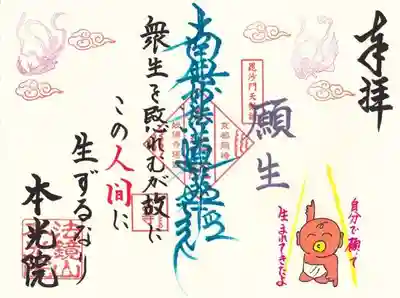 奉拝
願生
自分で願って
生まれてきたよ
毘沙門天
南無妙法蓮華経
京都岡崎
衆生を愍れむが故に
この人間に
生ずるなり
本光院
法鏡山